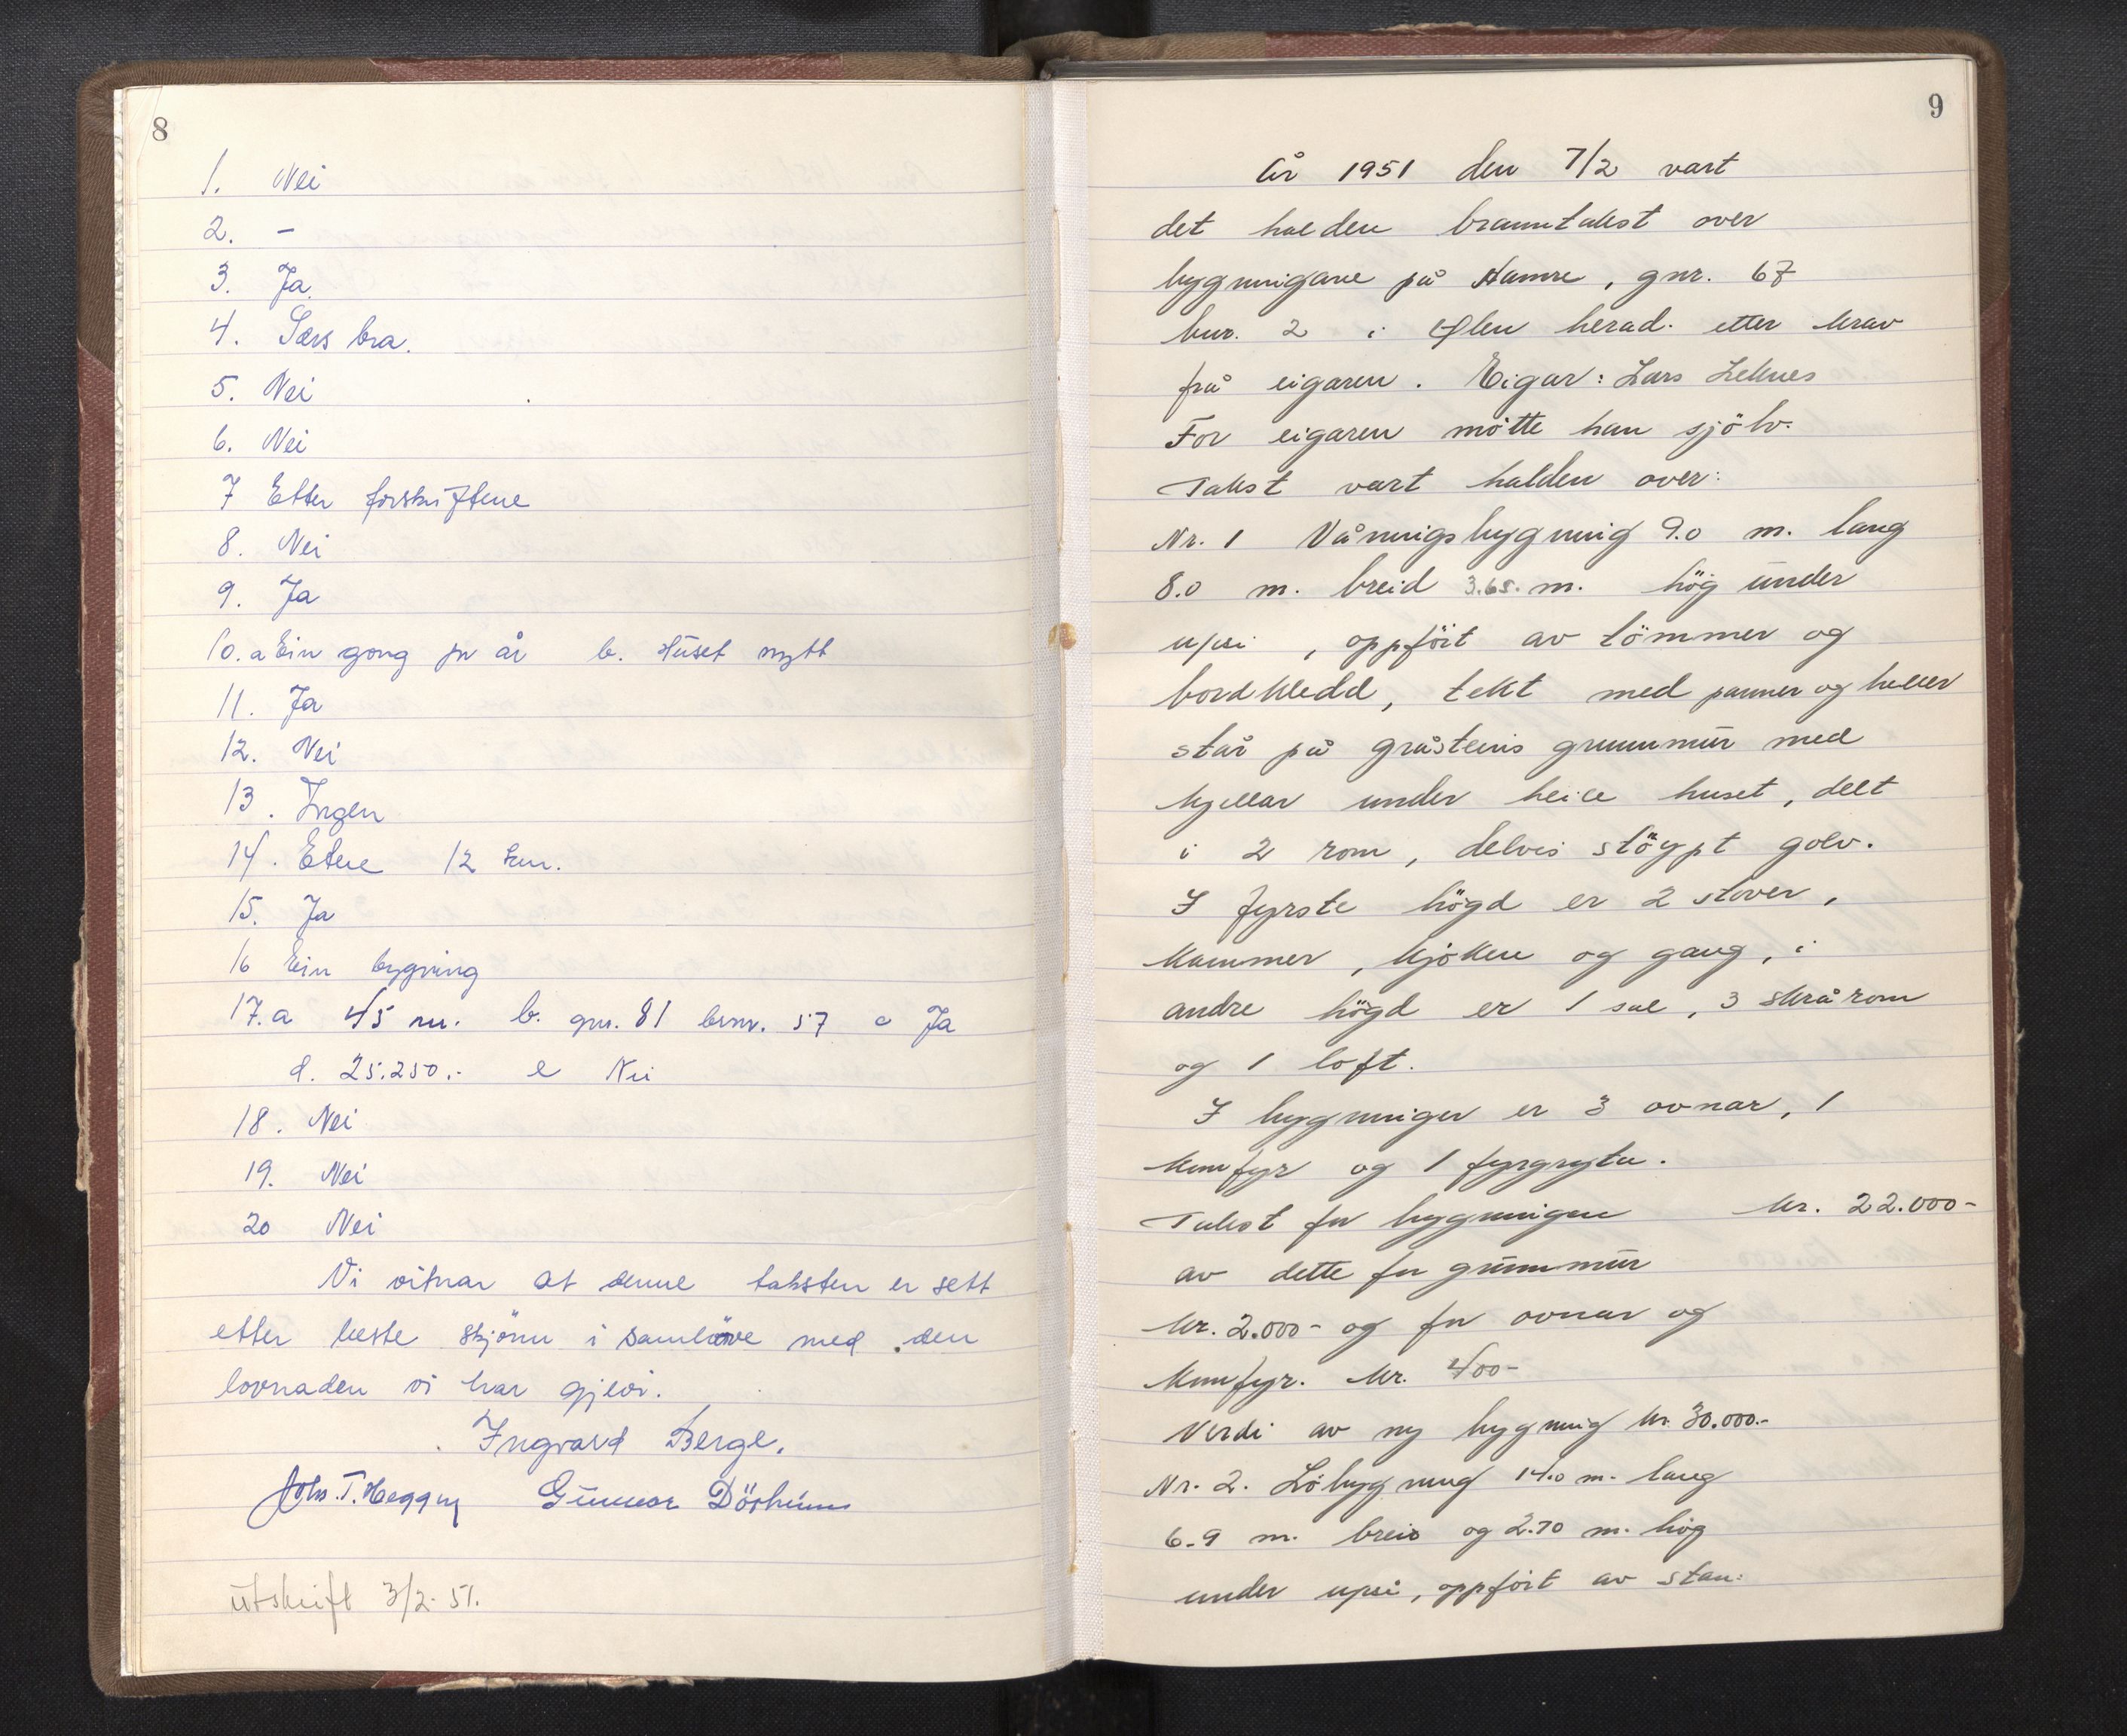 8
1. Nei
2. -
3. Ja.
4. Særs bra.
5. Nei
6. Nei
7 Etter forskriftene
8. Nei
9. Ja
10. a Ein gong pr år b. Huset nytt
11. Ja
12. Nei
13. Ingen
14. Etne 12 km.
15. Ja
16 Ein bygning
17. a 45 m. b. gnr. 81 brnr. 57 c Ja
d. 25.250.- e Nei
18. Nei
19. Nei
20 Nei
Vi vitnar at denne taksten er sett
etter beste skjönn i samløve med den
lovnaden vi har gjevi.
Ingvard Berge.
Johs. T. Heggen Gunnar Dörheim
utskrift 3/2-51.
9
År 1951 den 7/2 vart
det halden branntakst over
bygningane på Hamre, gnr. 67
bnr. 2 i Ølen herad. etter krav
frå eigaren. Eigar: Lars Leknes
For eigaren møtte han sjölv.
Takst vart halden over:
Nr. 1 Våningsbygning 9.0 m. lang
8.0 m. breid 3.65. m. høg under
upsi, oppföit av tömmer og
bordkledd, tekt med panner og heller
står på gråsteins grunnmur med
kjellar under heile huset, delt
i 2 rom, delvis stöypt golv.
I fyrste högd er 2 stover,
kammer, kjøken og gang, i
andre högd er 1 sal, 3 skrårom
og 1 loft.
I bygningen er 3 ovnar, 1
komfyr og 1 fyrgryta.
Takst for bygningen kr. 22.000-
av dette for grunnmur
kr. 2.000- og for ovnar og
komfyr. kr. 400-
Verdi av ny bygning kr. 30.000.-
Nr. 2. Løbygning 14.0 m. lang
6.9 m. breid og 2.70 m. høg
under upsi, oppført av stan: